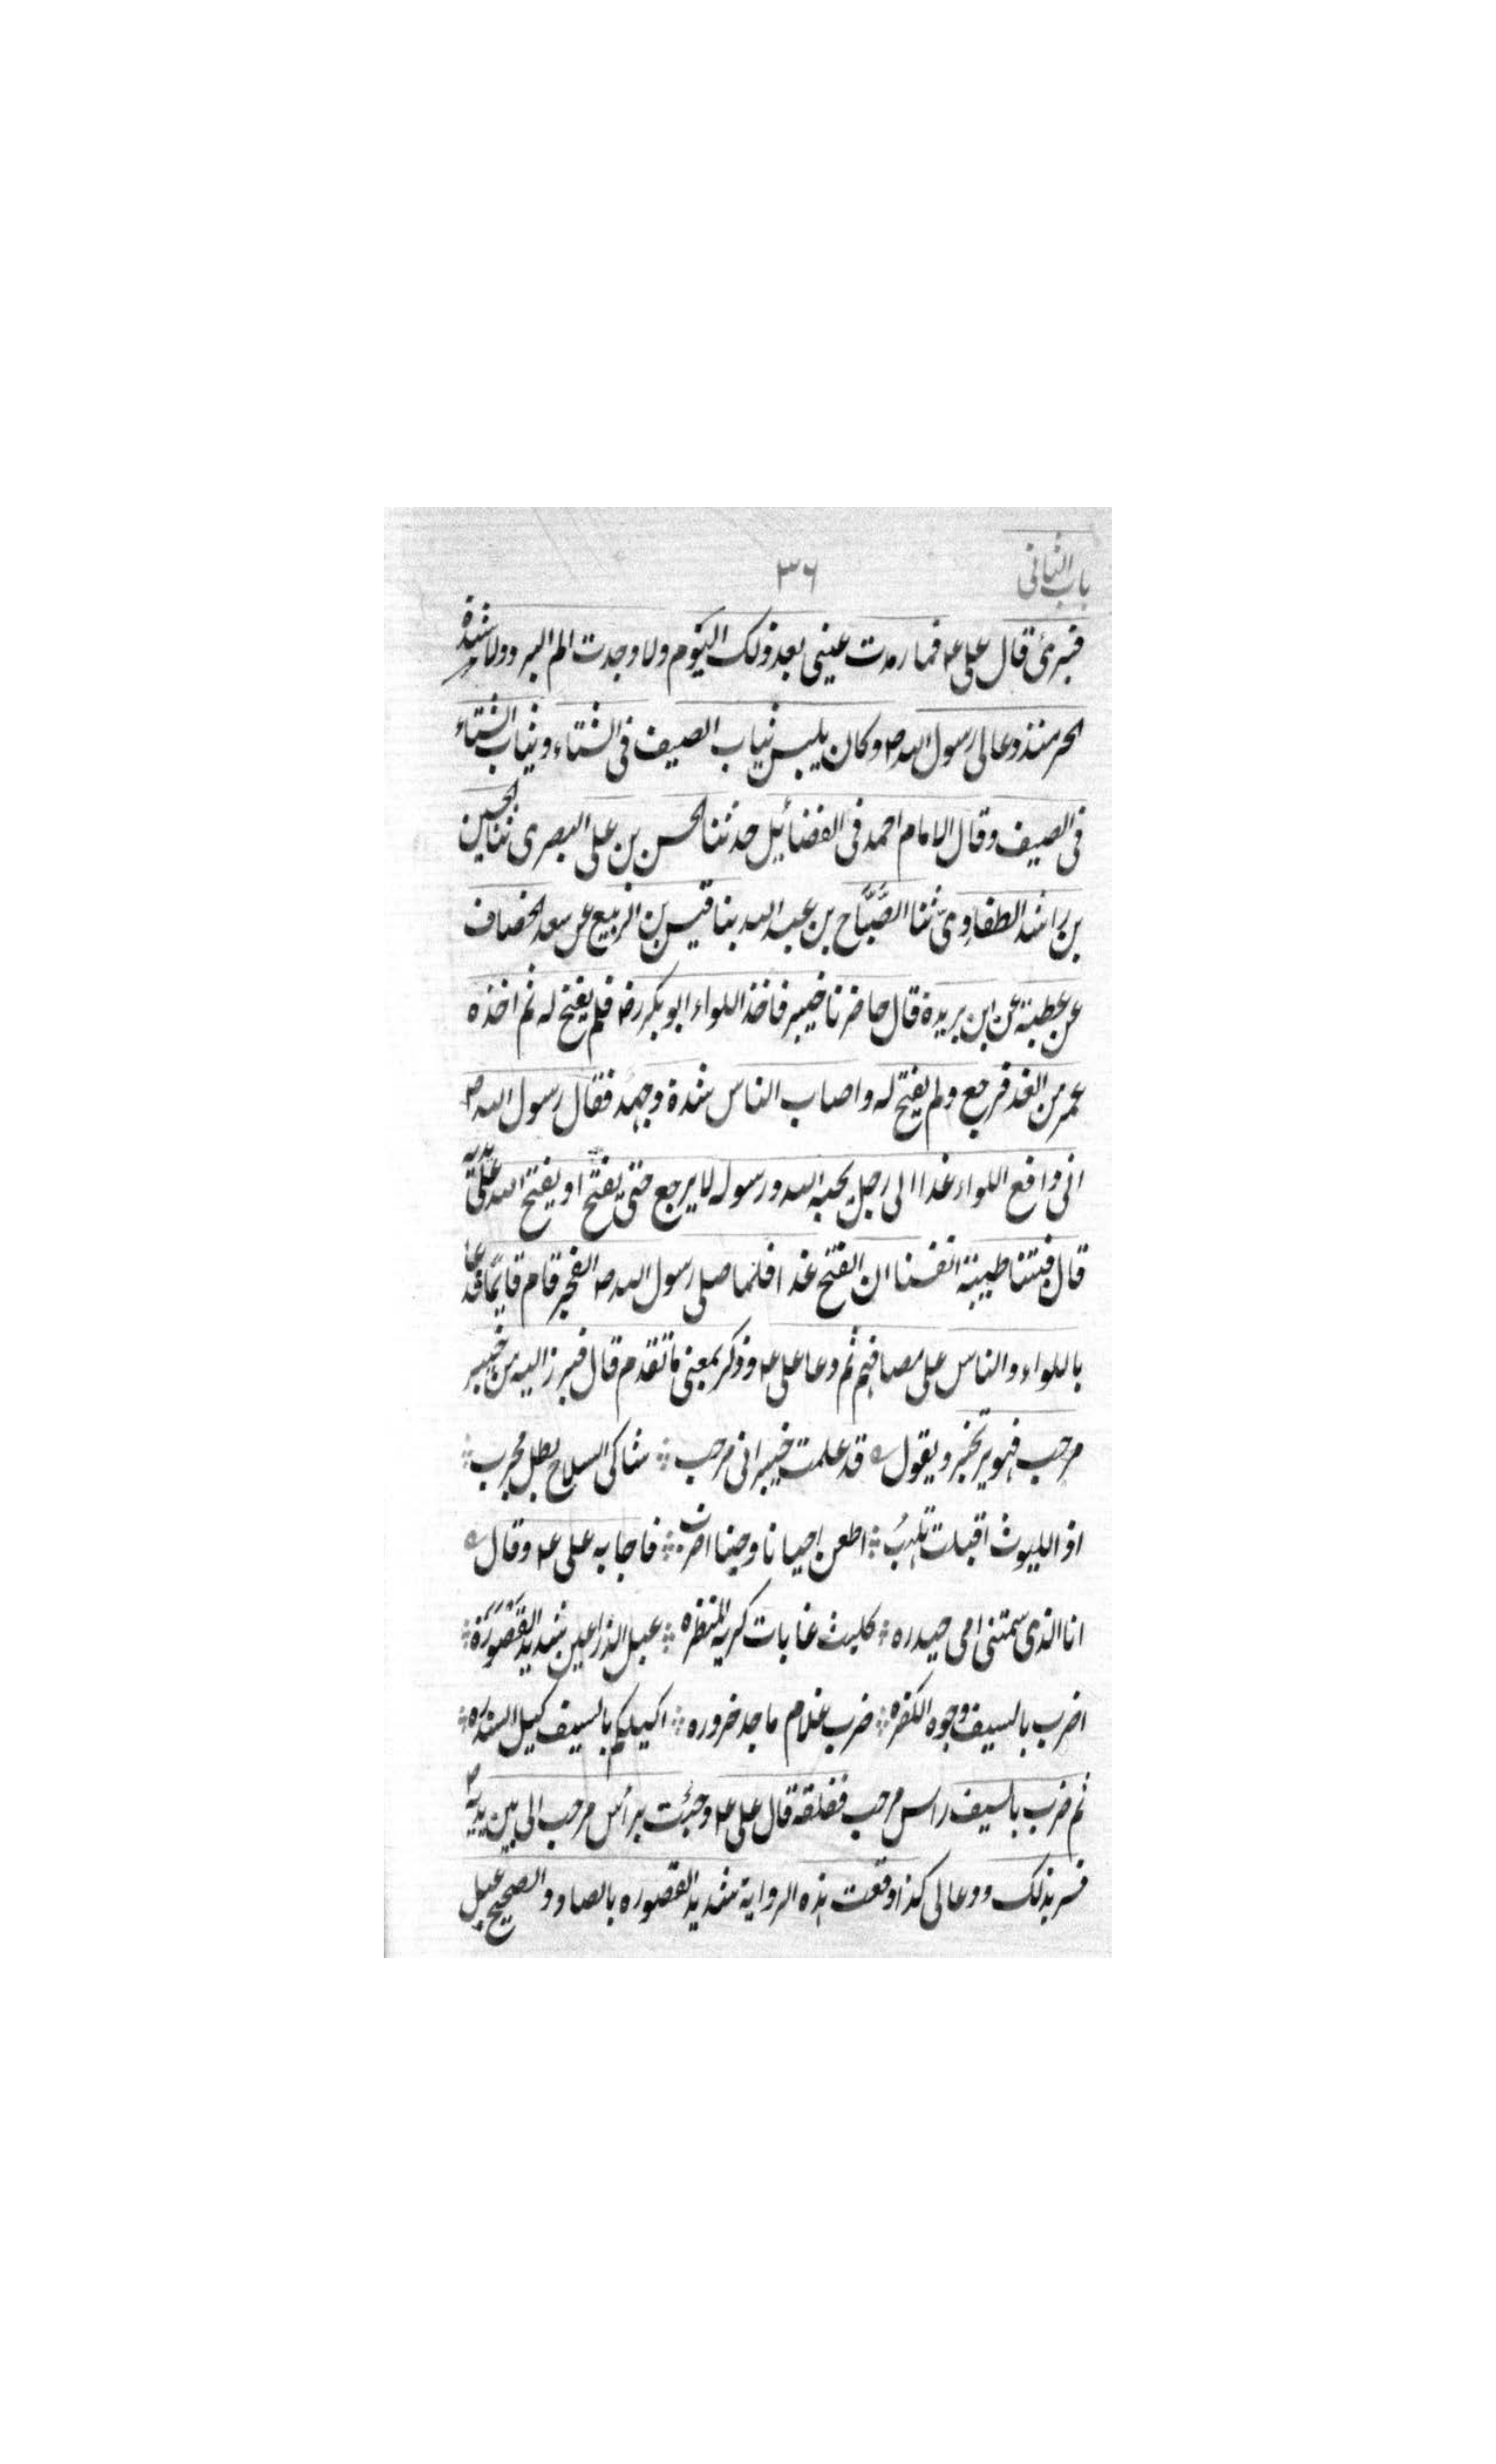 باب الثانی
٣٦
فبرئ قال علی ع فما رمدت عینی بعد ذلک الیوم ولا وجدت الم البرد ولا شدة
الحر منذ دعا لی رسول الله ص وکان یلبس ثیاب الصیف فی الشتاء وثیاب الشتاء
فی الصیف وقال الامام احمد فی الفضائیل حدثنا الحسن بن علی البصری ثنا الحسین
بن راشد الطفاوی ثنا الصَّبَّاح بن عبد الله بنا قیس بن الربیع عن سعد الخصاف
عن عطیة عن ابن بریدة قال حاضرنا خیبر فاخذ اللواء ابو بکر رض فلم یفتح له ثم اخذه
عمر من الغد فرجع ولم یفتح له واصاب الناس شدة وجهد فقال رسول الله ص
انی دافع اللواء غدا الی رجل یحبه الله ورسوله لا یرجع حتی یفتح او یفتح الله علی یدیه
قال فبتنا طیبة انفسنا ان الفتح غدا فلما صلی رسول الله ص الفجر قام قایما فدعا
باللواء والناس علی مصافهم ثم دعا علی ع وذکر بمعنی ما تقدم قال فبرز الیه من خیبر
مرحب فهو یرتجز ویقول قد علمت خیبر انی مرحب شاکی السلاح بطل مجرب
اذ اللیوث اقبلت تلهبُ اطعن احیانا وحینا اضرب فاجابه علی ع وقال
انا الذی سمتنی امی حیدره کلیث غابات کریه المنظره عبل الذراعین شدید القَصْوَرَة
اضرب بالسیف وجوه الکفره ضرب غلام ماجد ضروره اکیلکم بالسیف کیل السندره
ثم ضرب بالسیف راس مرحب ففلقه قال علی ع وجئت برأس مرحب الی بین یدیه ص
فسر بذلک ودعا لی کذا وقعت هذه الروایة شدید القصوره بالصاد والصحیح عبل